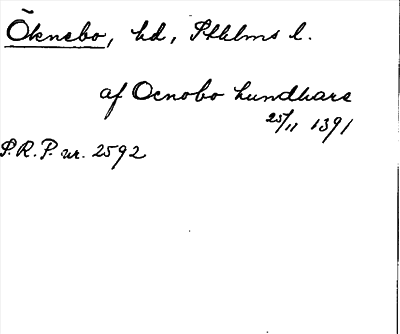 Öknebo, hd, Sthlms l.
af Ocnobo hundhars
25/11 1391
S.R.P. nr. 2592